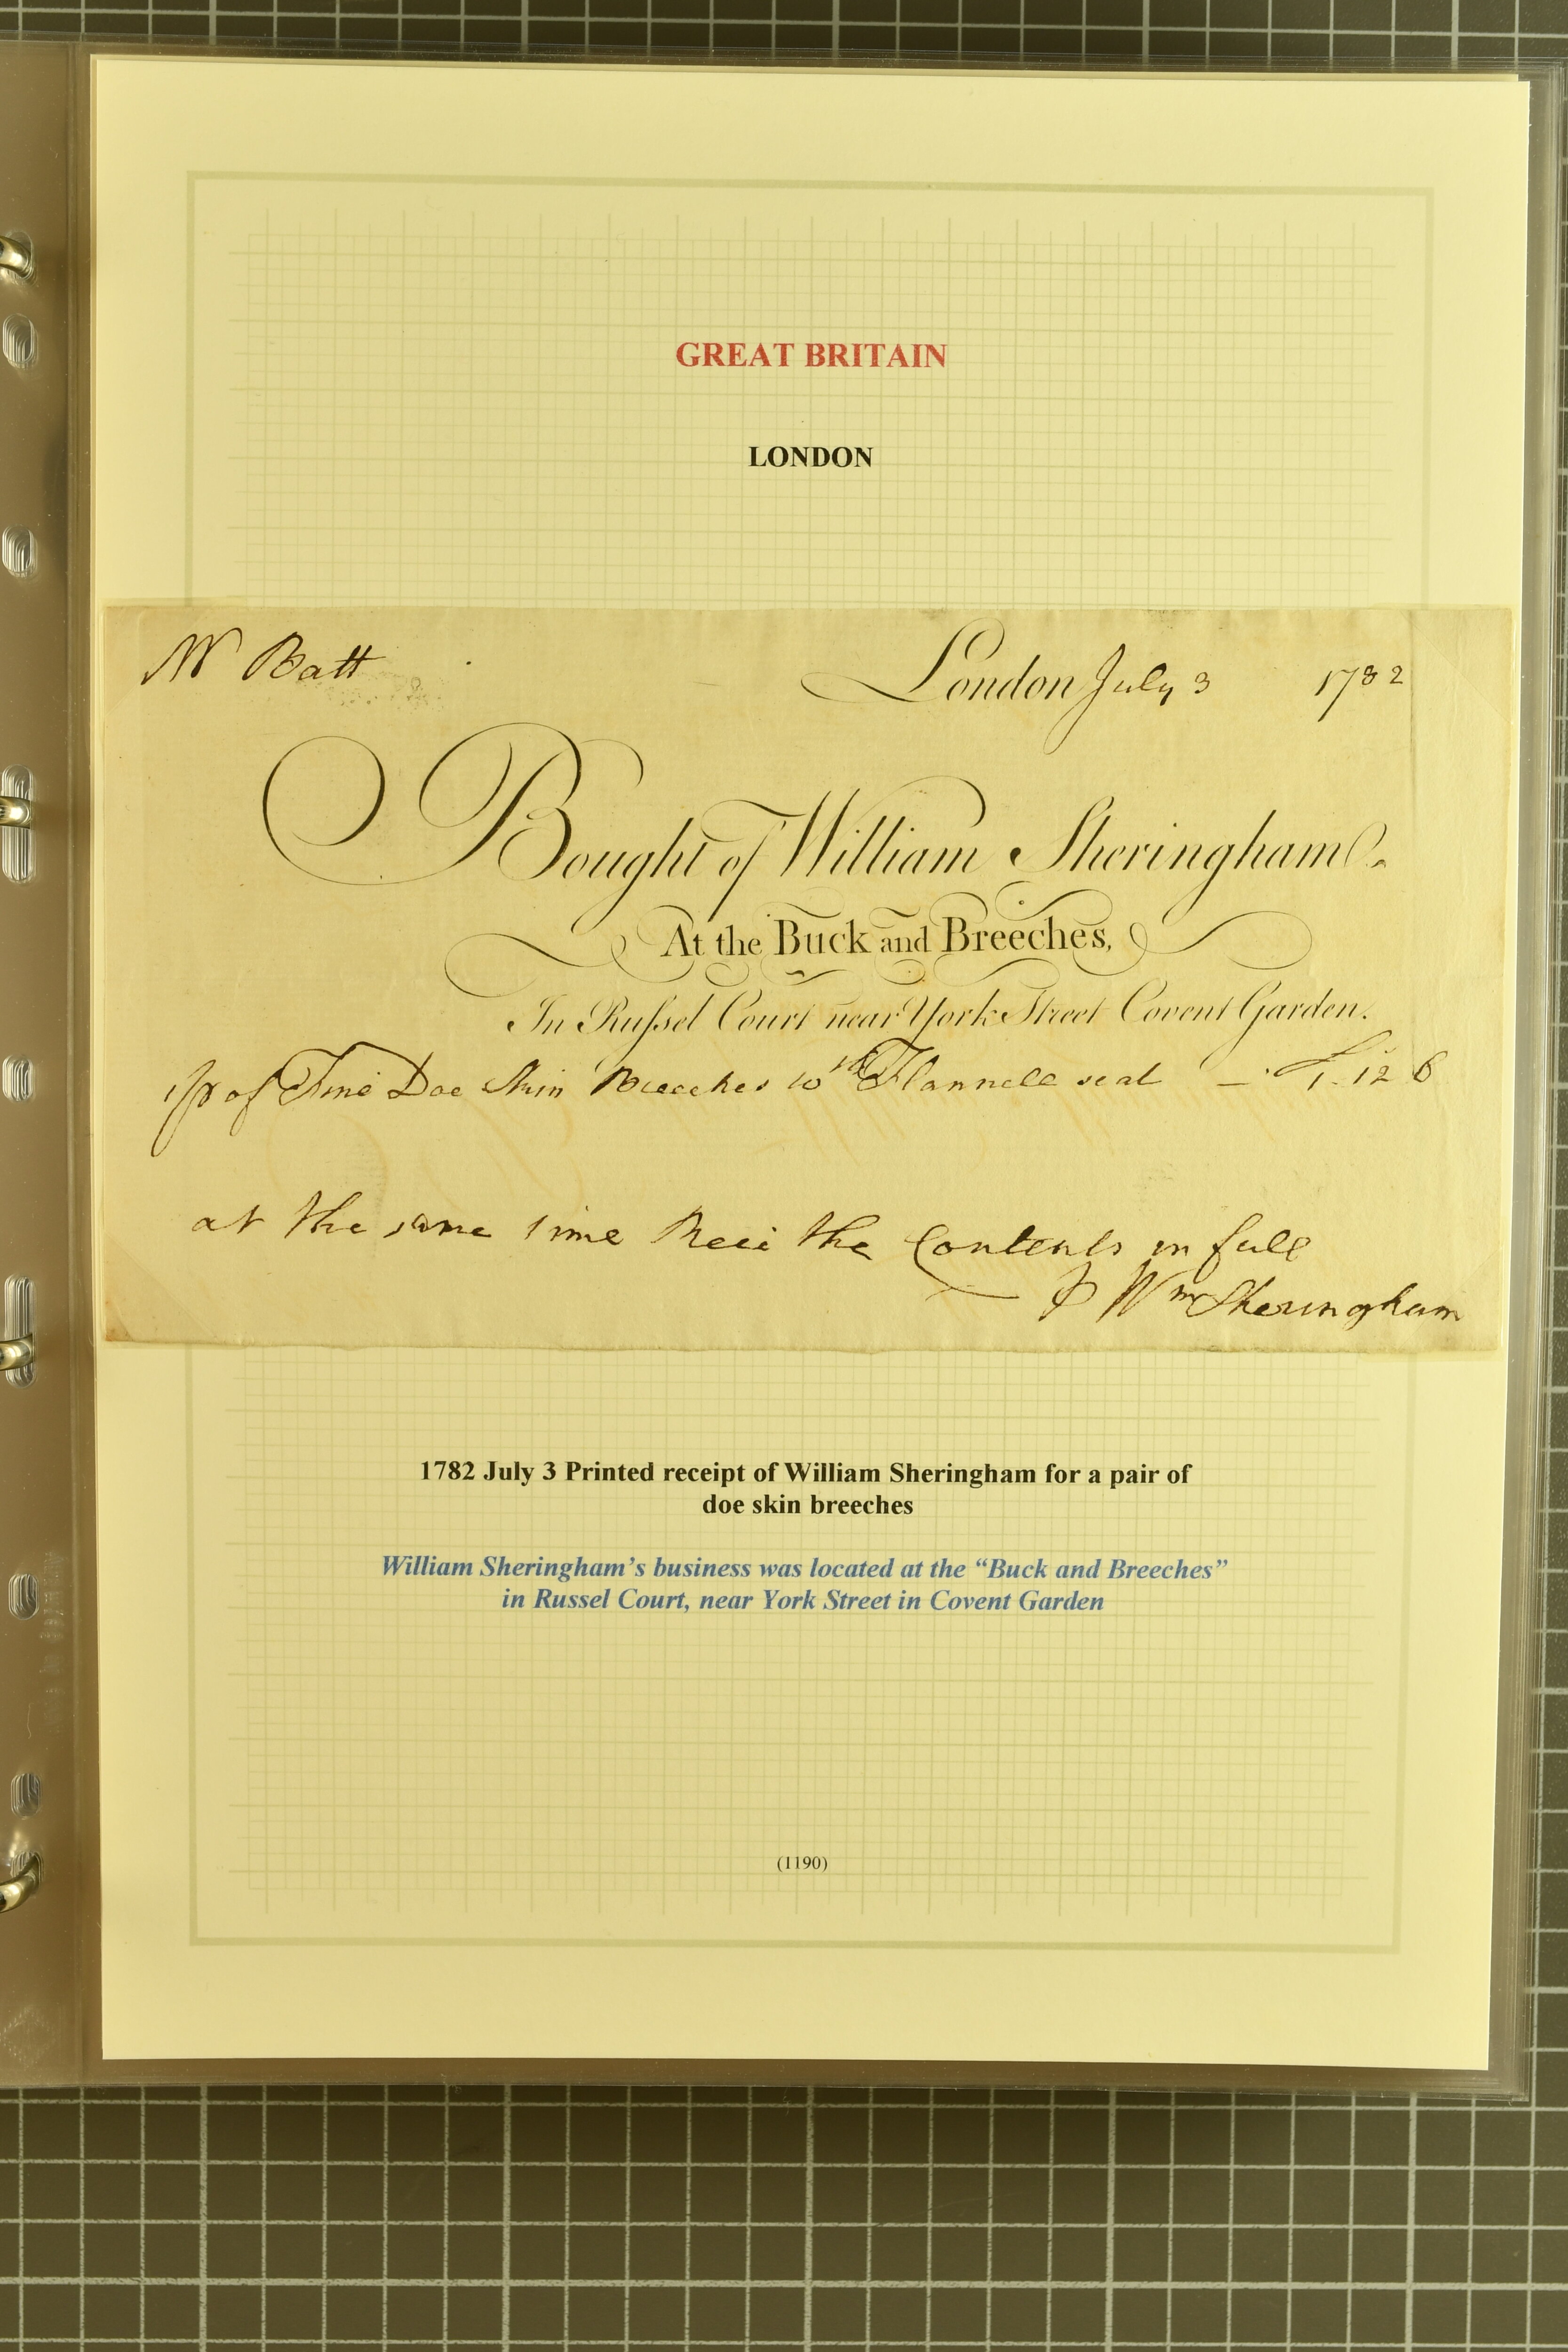 GREAT BRITAIN
LONDON
Mr Batt
London July 3 1782
Bought of William Sheringham
At the Buck and Breeches,
In Ruſsel Court near York Street Covent Garden.
1 pr of Fine Doe Skin Breeches wth Flannell seat — £ 1. 12 6
at the same time Recd the Contents in full
P Wm Sheringham
1782 July 3 Printed receipt of William Sheringham for a pair of
doe skin breeches
William Sheringham’s business was located at the “Buck and Breeches”
in Russel Court, near York Street in Covent Garden
(1190)